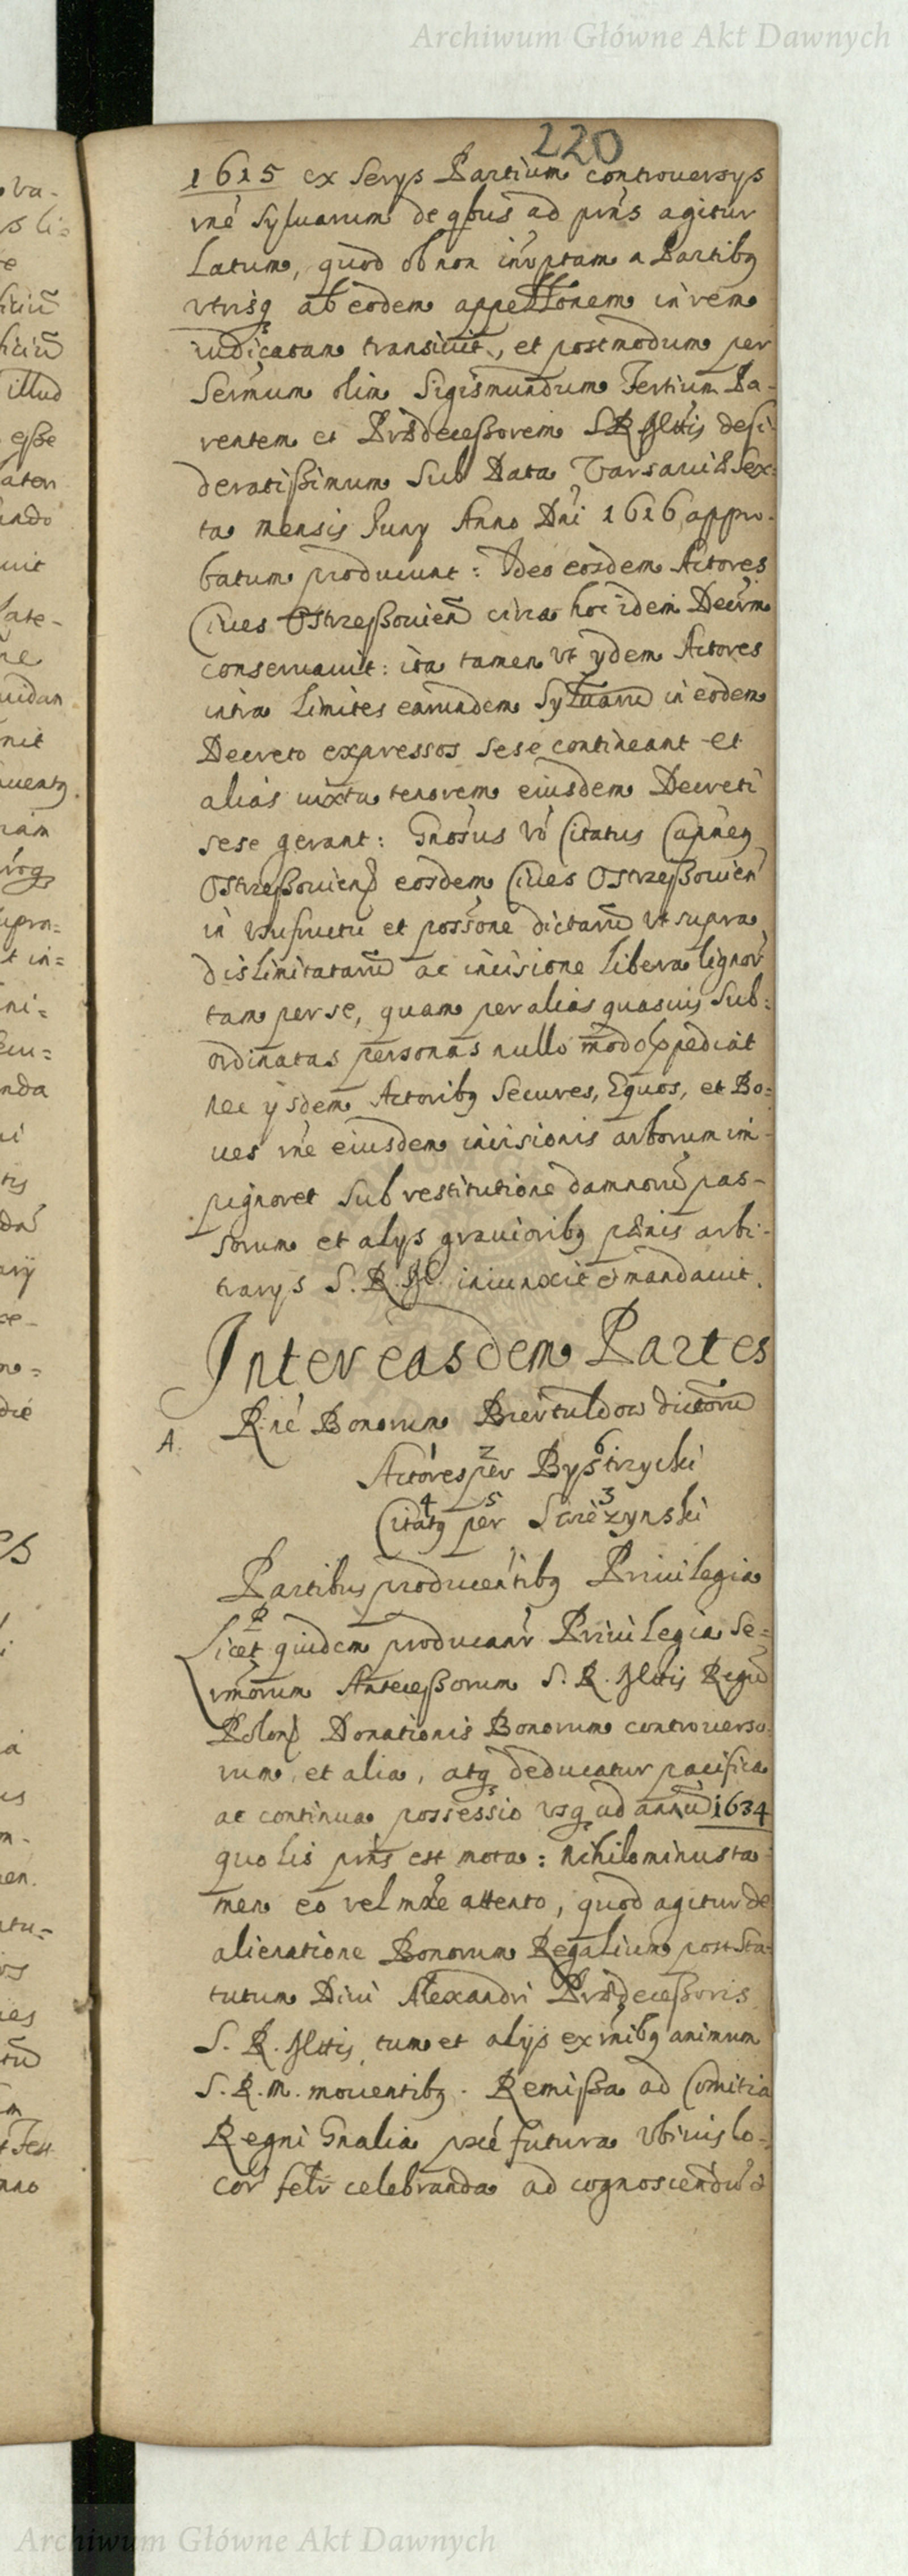 Archiwum Główne Akt Dawnych
220
1615 ex serys Partium controversys
rne Sylvarum de qbus ad pñs agitur
Latum, quod ob non inrptam a Partibq
vtrisq ab eodem appellonem in rem
iudicatam transivit, et postmodum per
Sermum olim Sigismundum Tertium Pa-
rentem et Prædeceßorem SRMttis desi-
deratißimum Sub Data Varsaviæ Sex-
ta mensis Juny Anno Dni 1616 appro-
batum producunt: Ideo eosdem Actores
Cives Ostrzeßovieñ circa hoc idem Decrm
conservavit: ita tamen vt ydem Actores
intra Limites earundem Sylvarũ in eodem
Decreto expressos sese contineant et
alias iuxta tenorem eiusdem Decreti
sese gerant: Gnosus vo Citatus Capneq
Ostrzeßovieñ eosdem Cives Ostrzeßovieñ
in vsufructu et possone dictarũ vt supra
dislimitatarũ ac incisione libera lignor
tam per se, quam per alias quasvis Sub:
ordinatas personas nullo modo Ippediat
nec ysdem Actoribq Secures, Equos, et Bo:
ves rne eiusdem incisionis arborum im-
pignoret Sub restitutione damnorũ pas-
sorum et alys gravioribq pænis arbi-
trarys S. R. M. iniunxit et mandavit.
Inter easdem Partes
A. R:ne Bonorum Biertuldow dictorũ
Actores per 2 Bystrzycki 6
Citatq 4 per 5 Swiezynski 3
Partibus producentibq Privilegia
Licet quidem producanr Privilegia Se=
rmorum Anteceßorum S. R. Mttis Regũ
Poloñ Donationis Bonorum controverso
rum, et alia, atq deducatur pacifica
ac continua possessio vsq ad annũ 1634
quo lis pñs est mota: nihilominus ta-
men eo vel mxe attento, quod agitur de
alienatione Bonorum Regalium post Sta-
tutum Divi Alexandri Prædeceßoris
S. R. Mttis, tum et alijs ex rnibq animum
S. R. M. moventibq. Remißa ad Comitia
Regni Gnalia pxe futura vbivis lo-
cor felr celebranda ad cognoscendũ et
Archiwum Główne Akt Dawnych